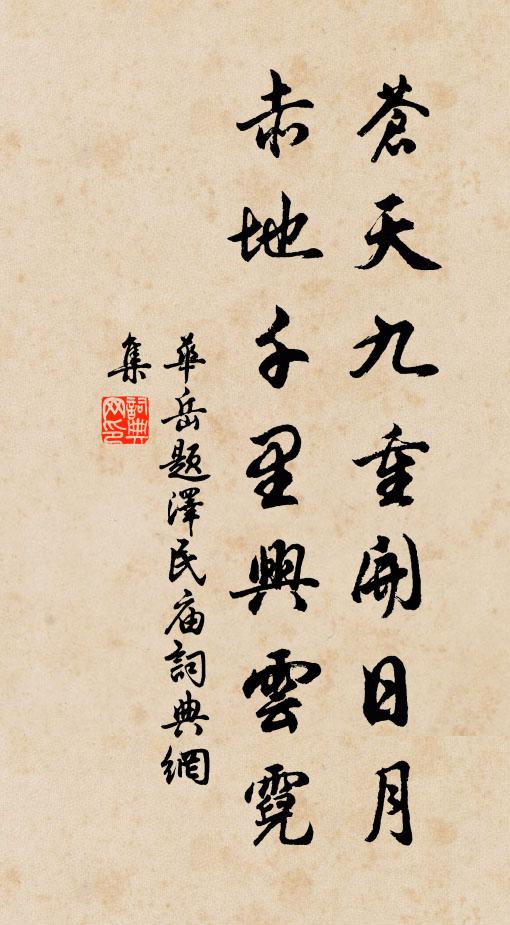 蒼天九重開日月
赤地千里興雲霓
華岳題澤民庙詞典網
集
詞典网印